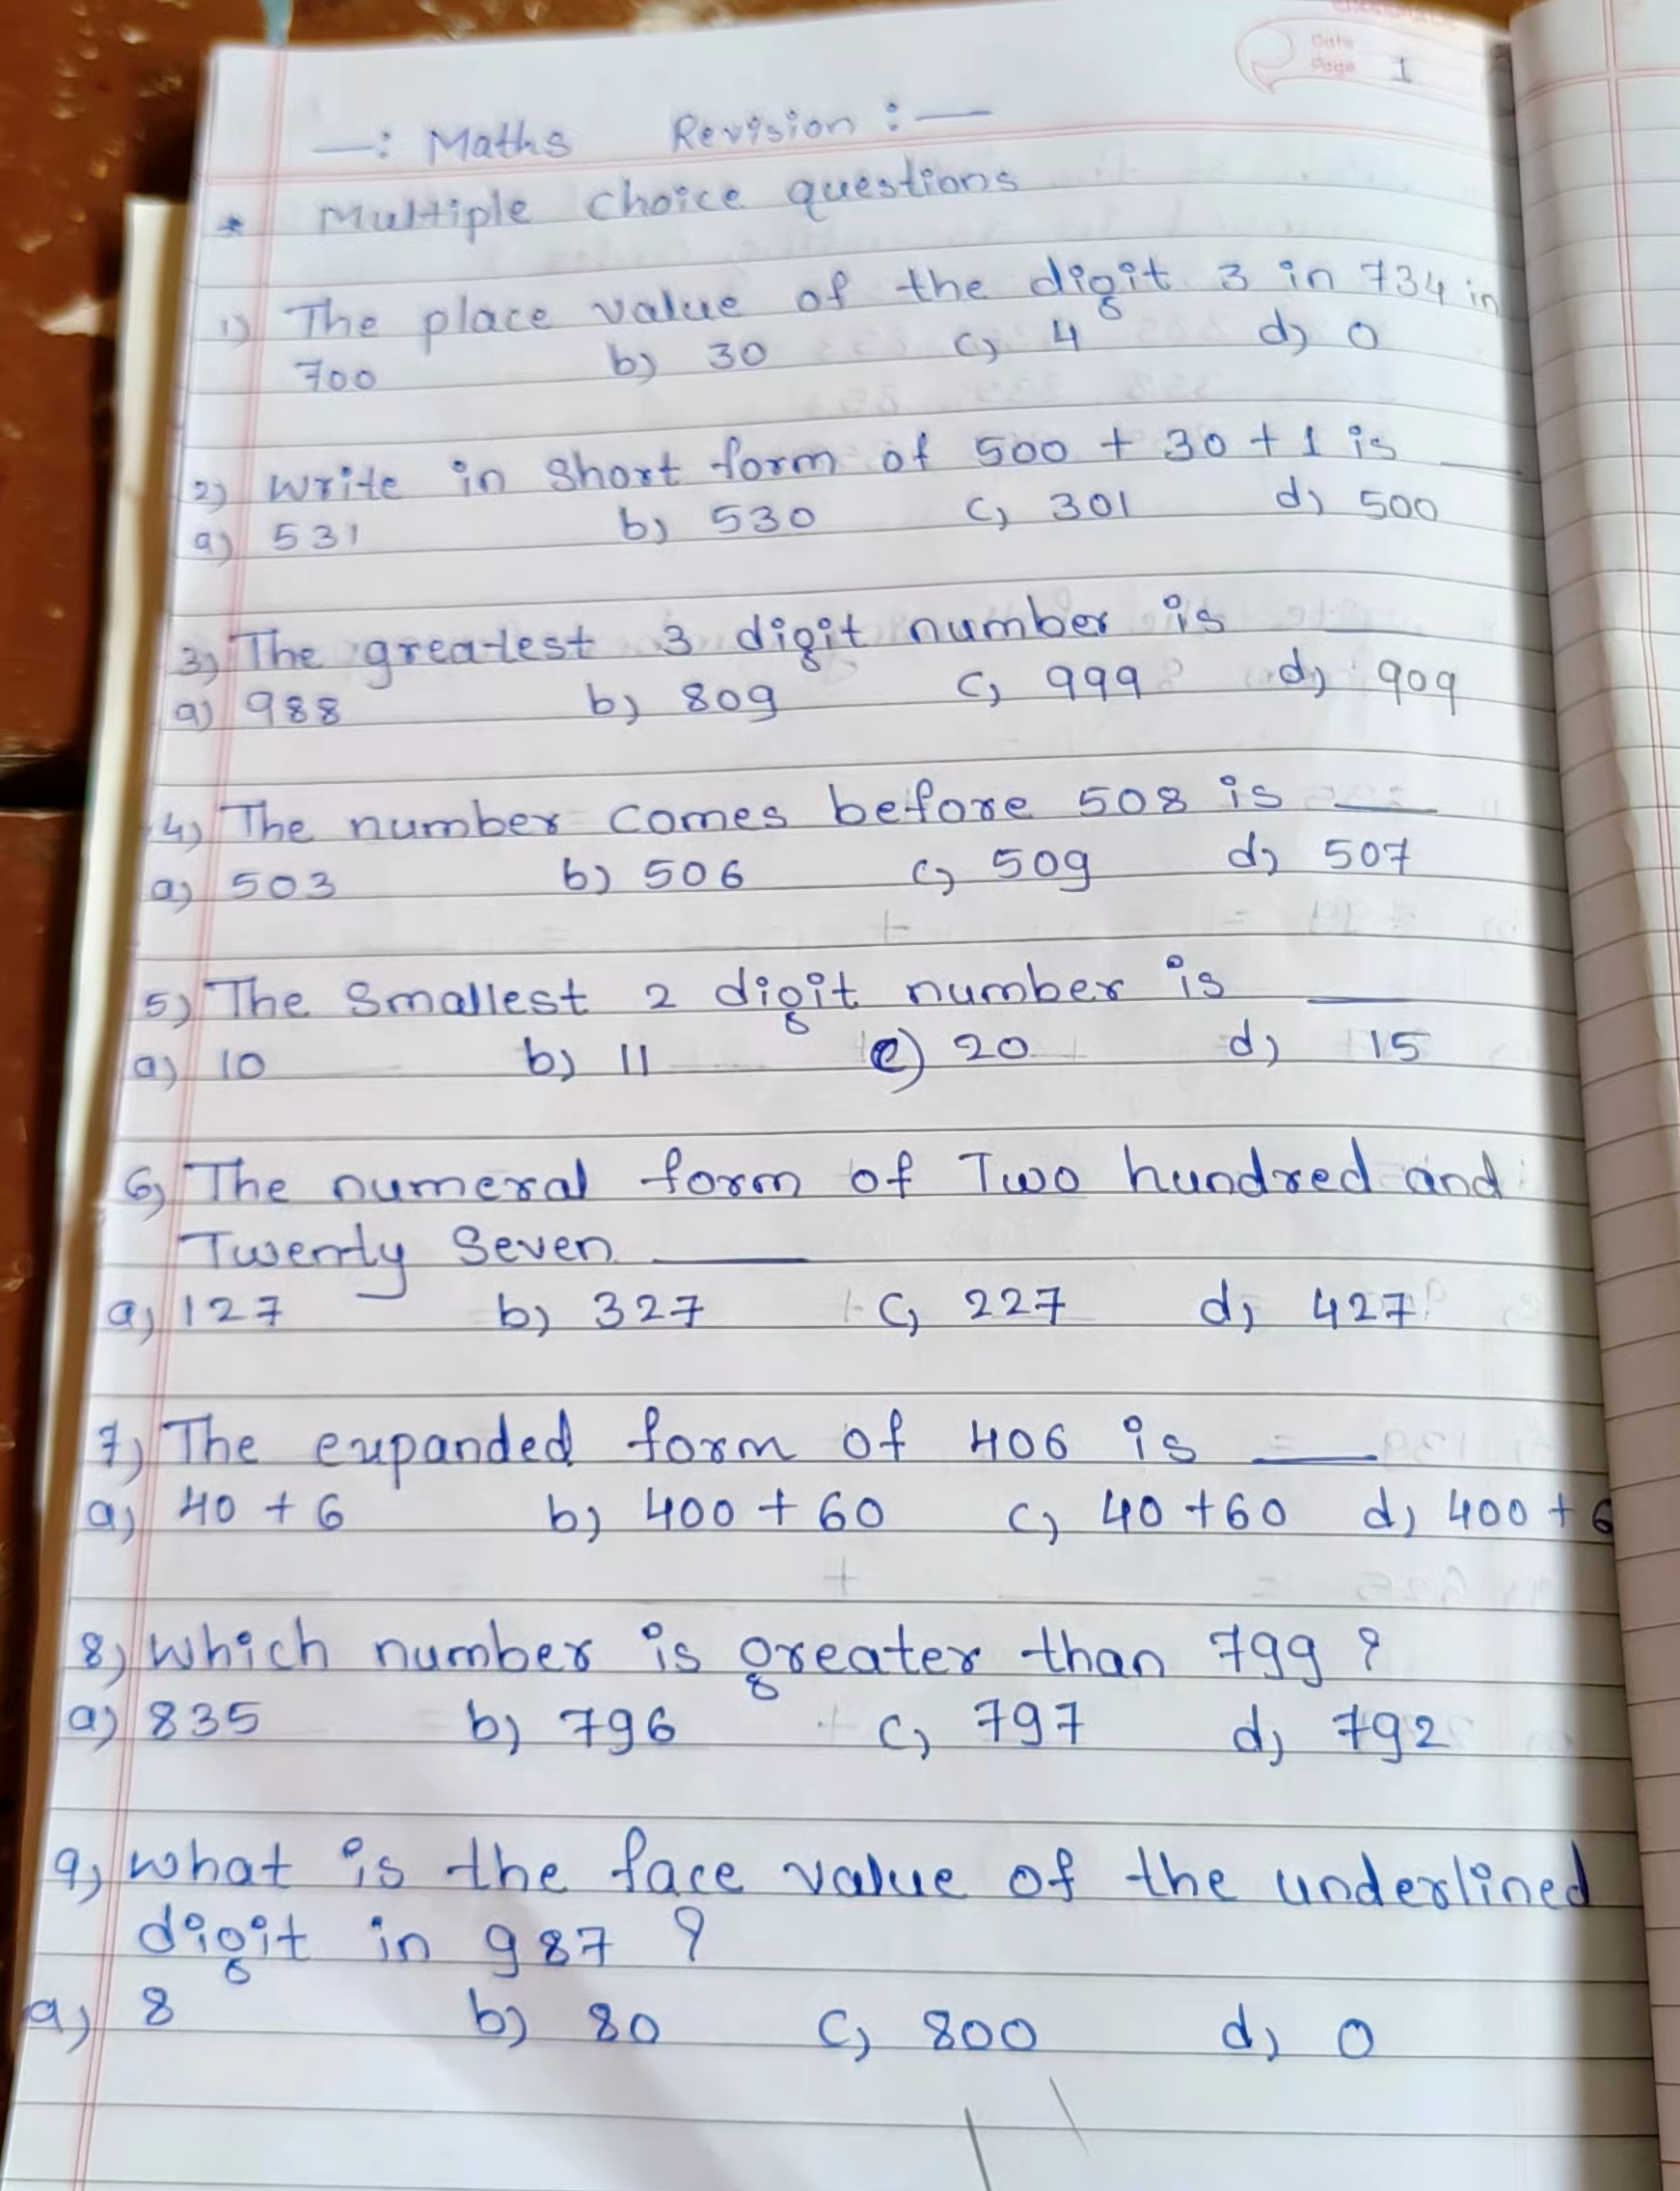 Date
Page 1
—: Maths Revision :—
* Multiple choice questions
1) The place value of the digit 3 in 734 in
700 b) 30 c) 4 d) 0
2) write in short form of 500 + 30 + 1 is ___
a) 531 b) 530 c) 301 d) 500
3) The greatest 3 digit number is ___
a) 988 b) 809 c) 999 d) 909
4) The number comes before 508 is ___
a) 503 b) 506 c) 509 d) 507
5) The Smallest 2 digit number is ___
a) 10 b) 11 c) 20 d) 15
6) The numeral form of Two hundred and
Twenty Seven ___
a) 127 b) 327 c) 227 d) 427
7) The expanded form of 406 is ___
a) 40 + 6 b) 400 + 60 c) 40 + 60 d) 400 + 6
8) Which number is greater than 799 ?
a) 835 b) 796 c) 797 d) 792
9) what is the face value of the underlined
digit in 987 ?
a) 8 b) 80 c) 800 d) 0